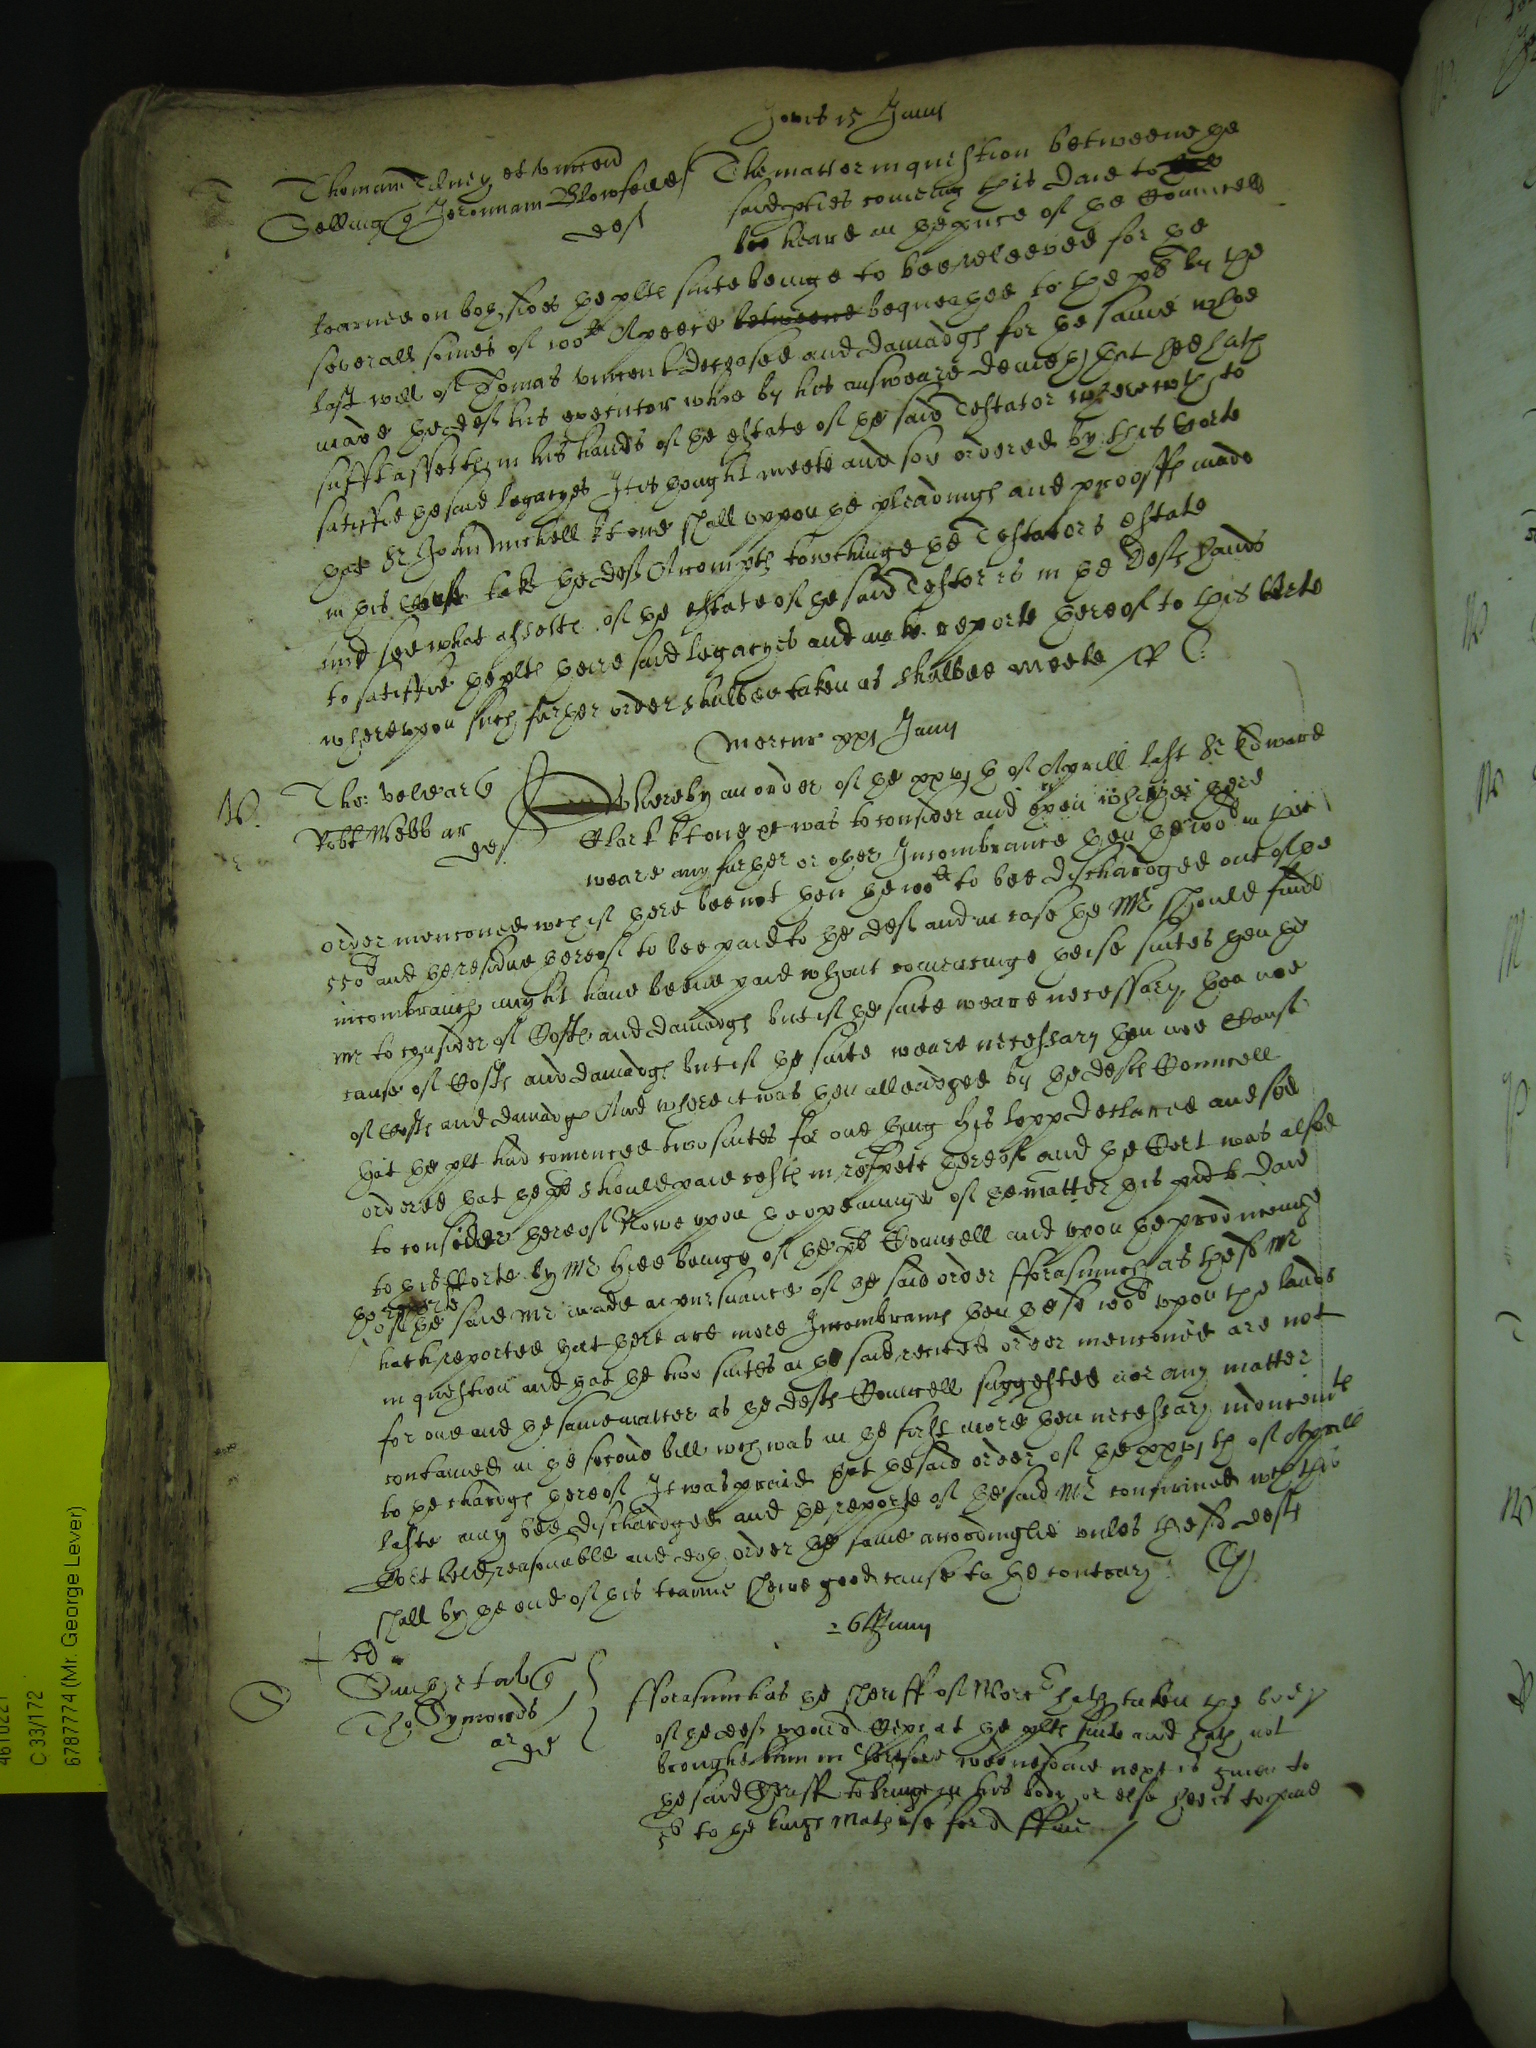 Jovis 15 Junij
T
Thomam Tilney et vincent
Selling q Jeronimam Blomfeild
def
The matter in question betweene the
said pties coming this daie to
bee heard in the pnce of the Councell
learned on both sides the plts suite beinge to bee releeved for the
severall somes of 100li A peece betweene bequeathed to the pls by the
last will of Thomas vincent deceased and damadgs for the same whoe
made the def his executor whoe by his answeare denieth that hee hath
suffit assetts in his hands of the estate of the said Testator wherewth to
satisfie the said legacyes It is thought meete and soe ordered by this Corte
that Sr John Michell kt one shall uppon the pleadings and prooffs made
in this Cause take the defts Accompts towchinge the Testators estate
and see what assetts of the estate of the said Testor is in the defts hands
to satisfie the plts theire said legacyes and make reporte thereof to this Corte
whereupon such further order shalbee taken as shalbee meete
Mercur xxj Junij
W.
Tho: q
Robt Webb ar
def
Whereby an order of the xxvjth of Aprill last Sr Edward
Clark kt one et was to consider and whither there
weare any further or other Incombrance then the 100li in the
order menconed wch if there bee not then the 100li to bee dischardged out of the
550li and the residue thereof to bee paid to the def and in case the Mr should finde
incombrancs might have beene paid wthout comencinge theise suites then the
Mr to consider of Costs and damadgs but if the suite weare necessary then noe
cause of Costs and damadgs but if the suite weare necessary then noe Cause
of Costs and damadgs And where it was then alleadged by the defts Councell
that the plt had comenced two suites for one thing his lopp declared and soe
ordered that the plt should paie costs in respect thereof and the Cort was alsoe
to consider thereof Nowe upon the openinge of the matter this pnte daie
to this Corte by Mr Hide beinge of the plts Councell and upon the producinge
the reporte
of the said Mr made in pursuance of the said order fforasmuch as the sd Mr
hath reported that there are more Incombrancs then the sd 100li upon the lands
in question and that the two suites in the said recited order menconed are not
for one and the same matter as the defts Councell suggested nor any matter
contained in the second bill wch was in the first more then necessary inducemts
to the chardgs thereof It was praid that the said order of the xxvjth of Aprill
laste may bee dischardged and the reporte of the said Mr confirmed wch this
Cort held reasonable and doth order the same accordinglie unles the sd defts
shall by the end of this tearme shewe good cause to the contrary
26 Junij
S
q
Tho: Symonds
ar
def
fforasmuch as the Sheriff of hath taken the body
of the def upon a Cepi at the plts suite and hath not
brought him in Therefore wednesdaie next is given to
the said Sheriff to bringe in his body or else hee is to paie
5li to the kings Matys use for A ffine
4610221
C 33/172
6787774 (Mr. George Lever)